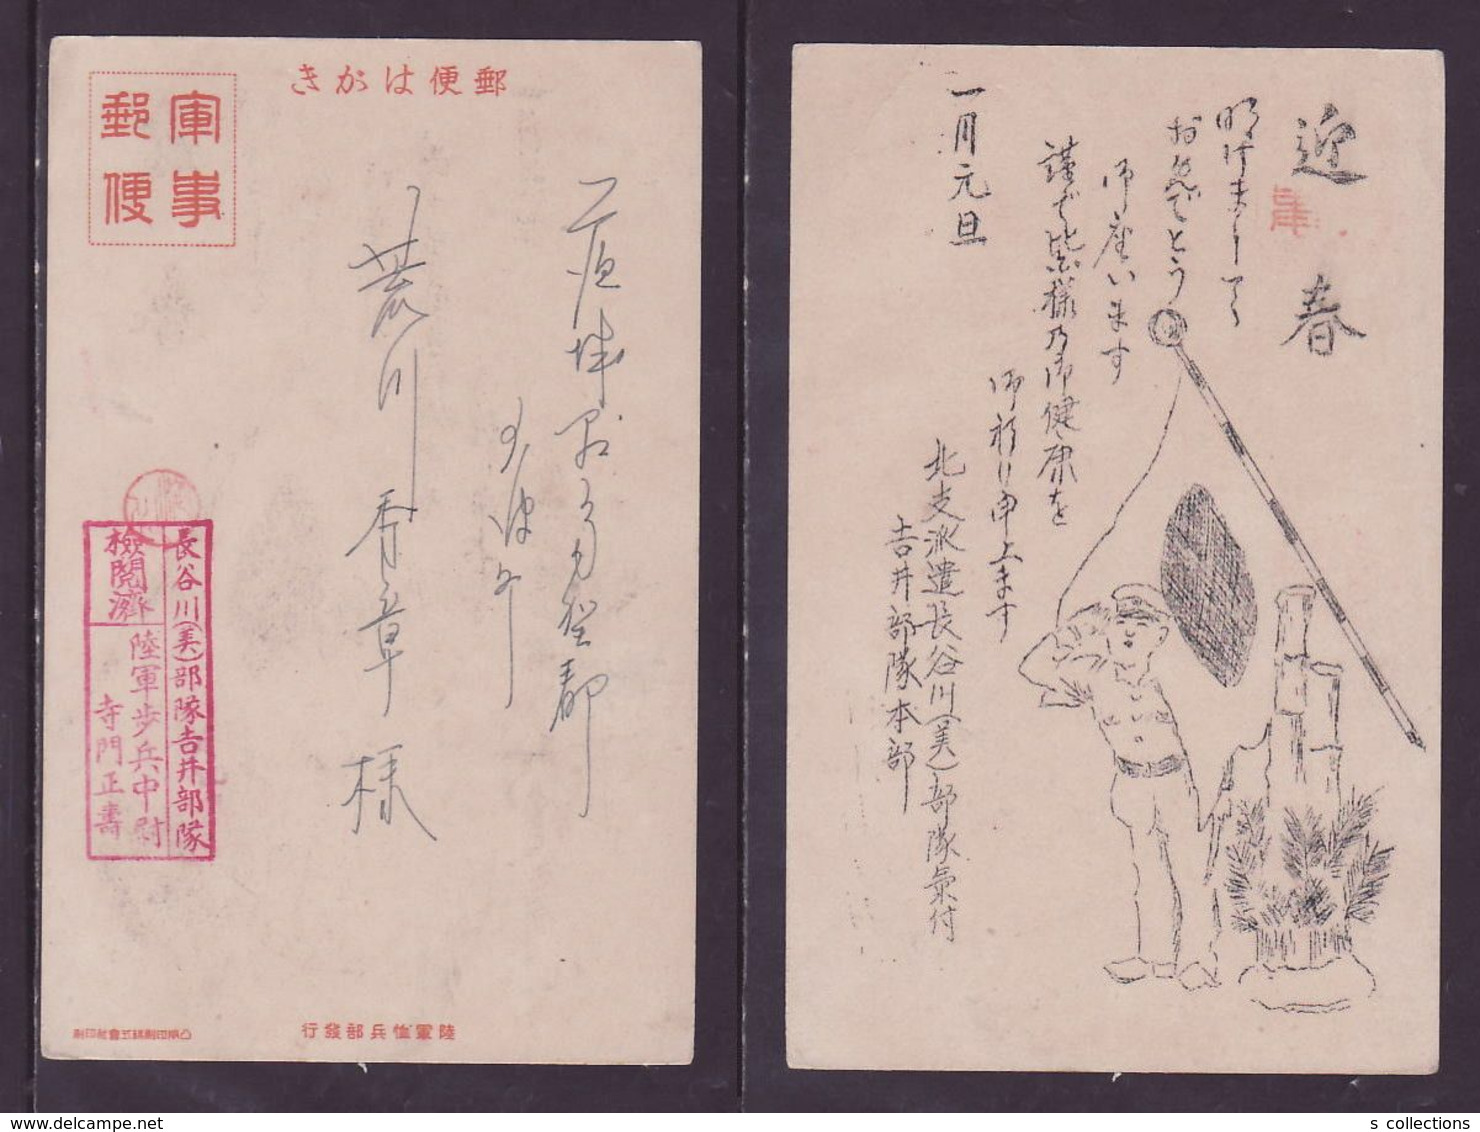 郵便はがき
軍事
郵便
茨城縣
荒川
様
長谷川(美)部隊吉井部隊
檢閲濟
陸軍歩兵中尉
寺門正壽
陸軍恤兵部發行
凸版印刷株式會社印刷
迎春
明けまして
お芽でとう
御座います
謹で皆様乃御健康を
御祈り申上ます
一月元旦
北支派遣長谷川(美)部隊氣付
吉井部隊本部
s collections